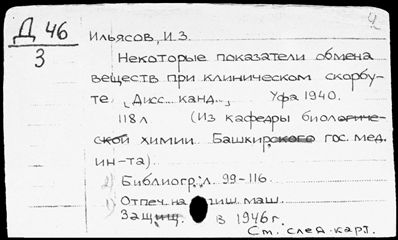 Д 46
3
4
Ильясов, И.З.
Некоторые показатели обмена
веществ при клиническом скорбу-
те. Дисс. канд. Уфа 1940.
118 л (Из кафедры биологиче-
ской химии. Башкирского гос. мед.
ин-та).
2) Библиогр: л. 99-116.
1) Отпеч. на пиш. маш.
Защищ. в 1946 г.
См. след. карт.